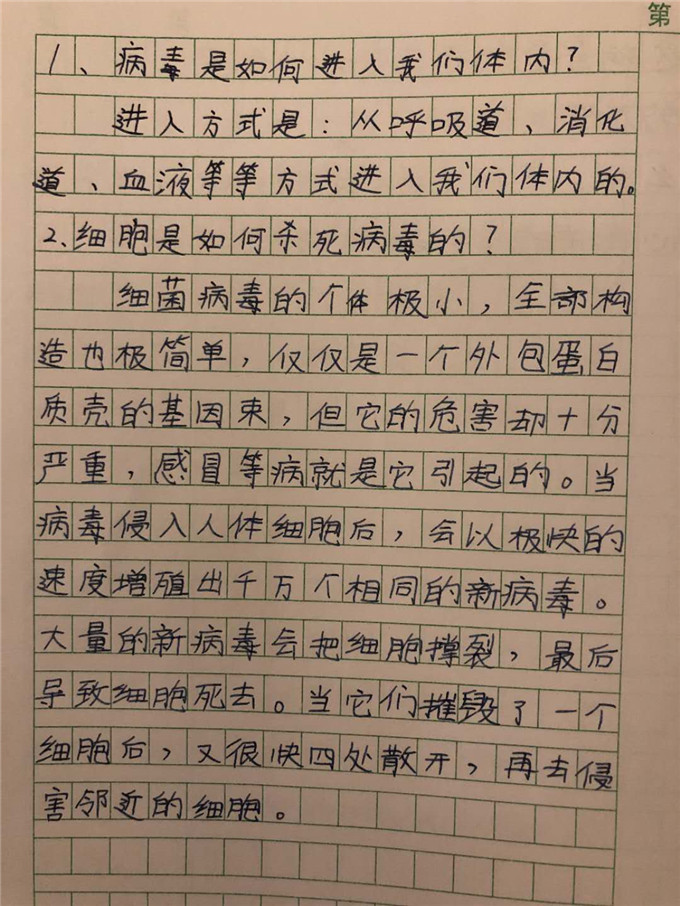 第
1、病毒是如何进入我们体内？
进入方式是：从呼吸道、消化
道、血液等等方式进入我们体内的。
2.细胞是如何杀死病毒的？
细菌病毒的个体极小，全部构
造也极简单，仅仅是一个外包蛋白
质壳的基因束，但它的危害却十分
严重，感冒等病就是它引起的。当
病毒侵入人体细胞后，会以极快的
速度增殖出千万个相同的新病毒。
大量的新病毒会把细胞撑裂，最后
导致细胞死去。当它们摧毁了一个
细胞后，又很快四处散开，再去侵
害邻近的细胞。